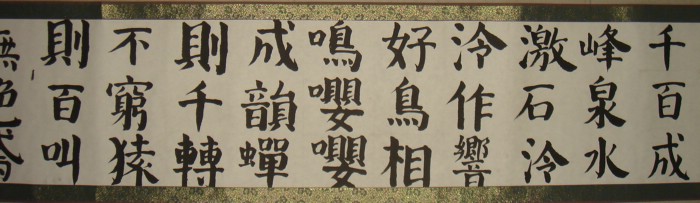 千百成
峰泉水
激石泠
泠作響
好鳥相
鳴嚶嚶
成韻蟬
則千轉
不窮猿
則百叫
無絶鳶